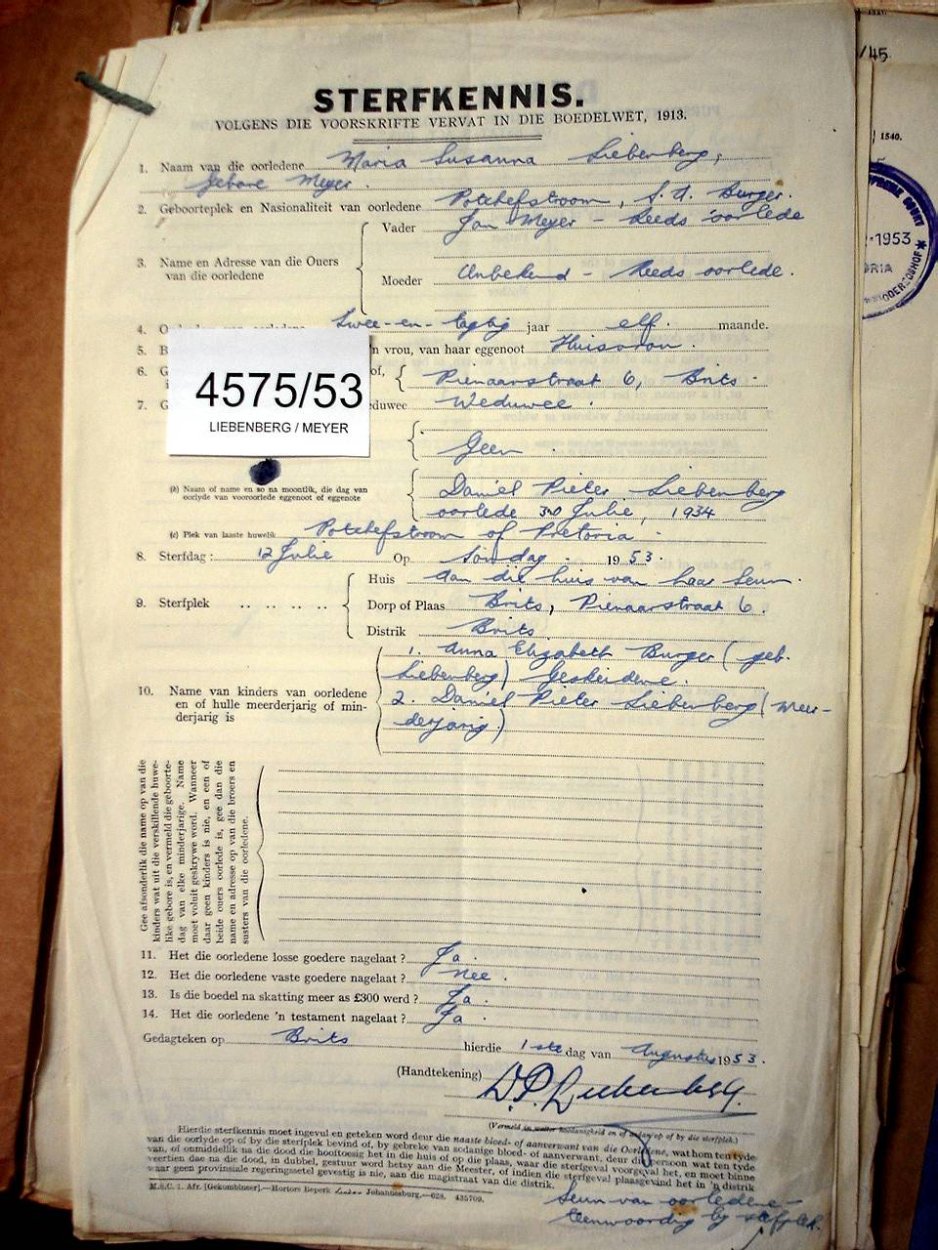 STERFKENNIS.
VOLGENS DIE VOORSKRIFTE VERVAT IN DIE BOEDELWET, 1913.
1. Naam van die oorledene Maria Susanna Liebenberg,
gebore Meyer.
2. Geboorteplek en Nasionaliteit van oorledene Potchefstroom, S.A. Burger.
Vader Jan Meyer - Reeds oorlede
3. Name en Adresse van die Ouers van die oorledene
Moeder Onbekend - Reeds oorlede.
4. Twee-en-tagtig jaar elf. maande.
5. n vrou, van haar eggenoot Huisvrou.
6. of, Pienaarstraat 6, Brits.
7. eduwee Weduwee.
4575/53
LIEBENBERG / MEYER
Geen
(b) Naam of name en so na moontlik, die dag van oorlyde van vooroorlede eggenoot of eggenote
Daniel Pieter Liebenberg
oorlede 30 Julie, 1934
(c) Plek van laaste huwelik Potchefstroom of Pretoria.
8. Sterfdag: 12 Julie Op Sondag 1953.
Huis Aan die huis van haar seun.
9. Sterfplek Dorp of Plaas Brits, Pienaarstraat 6.
Distrik Brits.
10. Name van kinders van oorledene en of hulle meerderjarig of minderjarig is
1. Anna Elizabeth Burger (geb.
Liebenberg) Geskeidene.
2. Daniel Pieter Liebenberg (Meer-
derjarig.)
Gee afsonderlik die name op van die
kinders wat uit die verskillende huwe-
like gebore is, en vermeld die geboorte-
dag van elke minderjarige. Name
moet voluit geskrywe word. Wanneer
daar geen kinders is nie, en een of
beide ouers oorlede is, gee dan die
name en adresse op van die broers en
susters van die oorledene.
11. Het die oorledene losse goedere nagelaat? Ja.
12. Het die oorledene vaste goedere nagelaat? Nee.
13. Is die boedel na skatting meer as £300 werd? Ja.
14. Het die oorledene 'n testament nagelaat? Ja.
Gedagteken op Brits hierdie 1ste dag van Augustus 1953.
(Handtekening) D.P. Liebenberg.
(Vermeld in watter hoedanigheid en of aanwesig by die sterfplek.)
Hierdie sterfkennis moet ingevul en geteken word deur die naaste bloed- of aanverwant van die Oorledene, wat hom ten tyde
van die oorlyde op of by die sterfplek bevind of, by gebreke van sodanige bloed- of aanverwant, deur die persoon wat ten tyde
van, of onmiddellik na die dood die hooftoesig het in die huis of op die plaas, waar die sterfgeval voorgeval het, en moet binne
veertien dae na die dood, in dubbel, gestuur word hetsy aan die Meester, of indien die sterfgeval plaasgevind het in 'n distrik
waar geen provinsiale regeringsetel gevestig is nie, aan die magistraat van die distrik.
M.S.C. 1. Afr. [Gekombineer].—Hortors Beperk Johannesburg.—628. 435709.
Seun van oorledene -
teenwoordig by sterfplek.
/45
1540.
1953